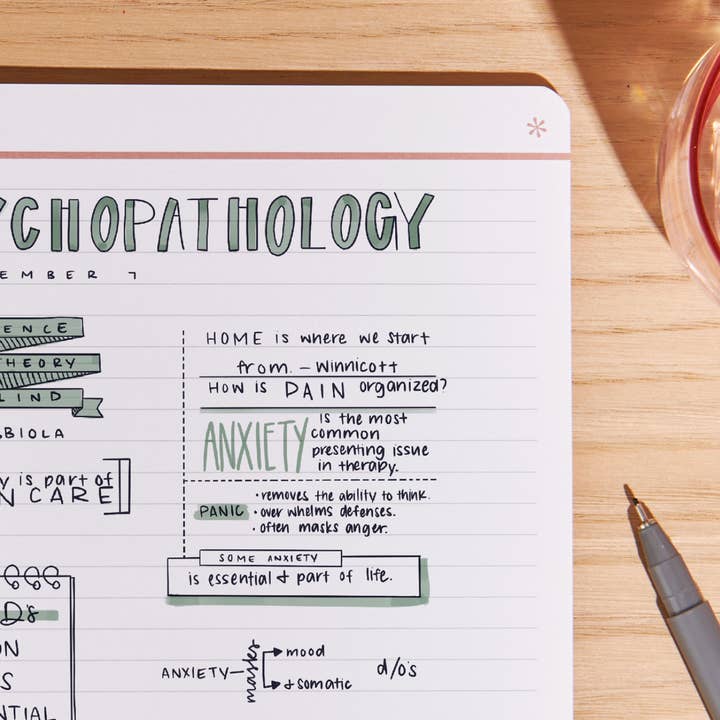 YCHOPATHOLOGY
EMBER 7
ENCE
THEORY
LIND
BIOLA
y is part of
N CARE
D's
ON
S
NTIAL
HOME is where we start
from. – Winnicott
HOW is DAIN organized?
ANXIETY is the most
common
presenting issue
in therapy.
PANIC
• removes the ability to think.
• over whelms defenses.
• often masks anger.
SOME ANXIETY
is essential & part of life.
ANXIETY – masks → mood
→ & somatic
d/o's